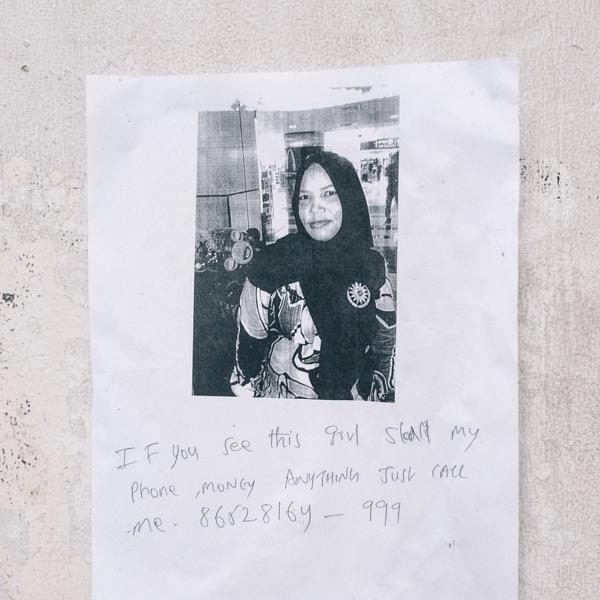 IF you see this girl my
Phone , MONEY ANYTHING JUST CALL
me - 86828164 - 999